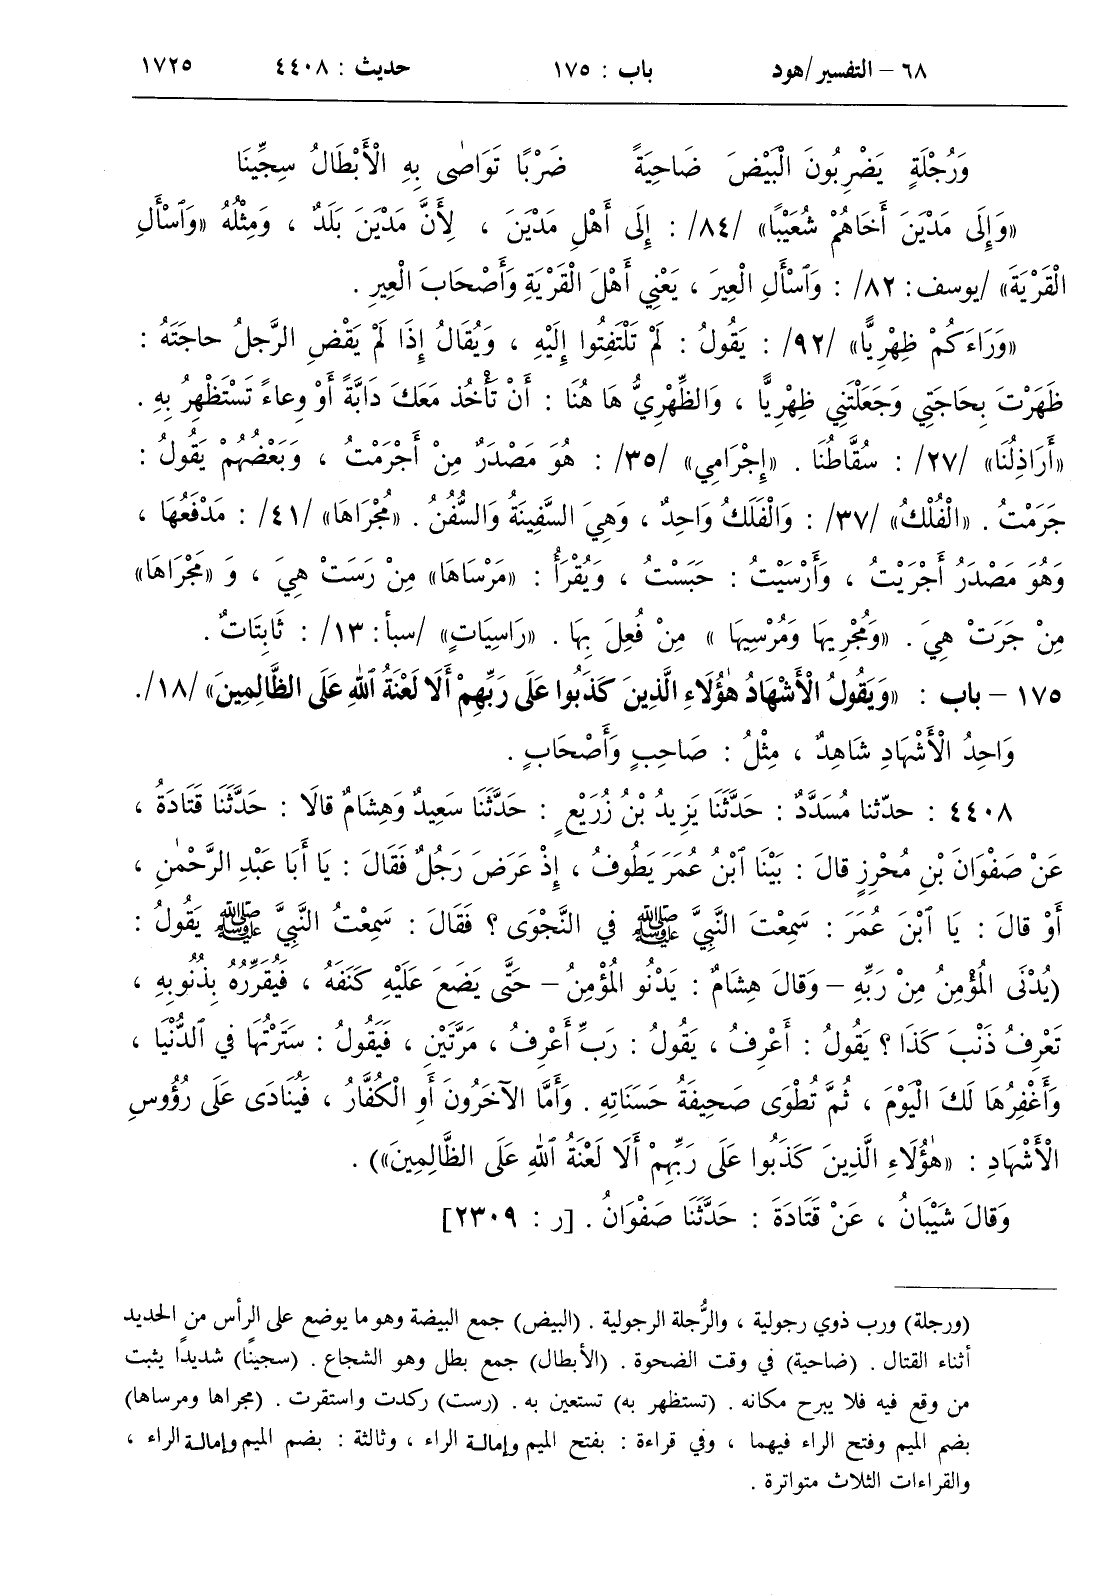 ٦٨ – التفسير/هود باب : ١٧٥ حديث : ٤٤٠٨ ١٧٢٥
وَرُجْلَةٍ يَضْرِبُونَ الْبَيْضَ ضَاحِيَةً ضَرْبًا تَوَاصٰى بِهِ الْأَبْطَالُ سِجِّينَا
«وَإِلَى مَدْيَنَ أَخَاهُمْ شُعَيْبًا» /٨٤/ : إِلَى أَهْلِ مَدْيَنَ ، لِأَنَّ مَدْيَنَ بَلَدٌ ، وَمِثْلُهُ «وَٱسْأَلِ
الْقَرْيَةَ» /يوسف: ٨٢/ : وَٱسْأَلِ الْعِيرَ ، يَعْنِي أَهْلَ الْقَرْيَةِ وَأَصْحَابَ الْعِيرِ .
«وَرَاءَكُمْ ظِهْرِيًّا» /٩٢/ : يَقُولُ : لَمْ تَلْتَفِتُوا إِلَيْهِ ، وَيُقَالُ إِذَا لَمْ يَقْضِ الرَّجُلُ حاجَتَهُ :
ظَهَرْتَ بِحَاجَتِي وَجَعَلْتَنِي ظِهْرِيًّا ، وَالظِّهْرِيُّ هَا هُنَا : أَنْ تَأْخُذ مَعَكَ دَابَّةً أَوْ وِعاءً تَسْتَظْهِرُ بِهِ .
«أَرَاذِلُنَا» /٢٧/ : سُقَّاطُنَا . «إِجْرَامِي» /٣٥/ : هُوَ مَصْدَرٌ مِنْ أَجْرَمْتُ ، وَبَعْضُهُمْ يَقُولُ :
جَرَمْتُ . «الْفُلْكُ» /٣٧/ : وَالْفَلَكُ وَاحِدٌ ، وَهِيَ السَّفِينَةُ وَالسُّفُنُ . «مُجْرَاهَا» /٤١/ : مَدْفَعُهَا ،
وَهُوَ مَصْدَرُ أَجْرَيْتُ ، وَأَرْسَيْتُ : حَبَسْتُ ، وَيُقْرَأُ : «مَرْسَاهَا» مِنْ رَسَتْ هِيَ ، وَ «مَجْرَاهَا»
مِنْ جَرَتْ هِيَ . «وَمُجْرِيهَا وَمُرْسِيهَا » مِنْ فُعِلَ بِهَا . «رَاسِيَاتٍ» /سبأ: ١٣/ : ثَابِتَاتٌ .
١٧٥ – باب : «وَيَقُولُ الْأَشْهَادُ هٰؤُلَاءِ الَّذِينَ كَذَبُوا عَلَى رَبِّهِمْ أَلَا لَعْنَةُ ٱللهِ عَلَى الظَّالِمِينَ» /١٨/.
وَاحِدُ الْأَشْهَادِ شَاهِدٌ ، مِثْلُ : صَاحِبٍ وَأَصْحَابٍ .
٤٤٠٨ : حدّثنا مُسَدَّدٌ : حَدَّثَنَا يَزِيدُ بْنُ زُرَيْعٍ : حَدَّثَنَا سَعِيدٌ وَهِشَامٌ قالَا : حَدَّثَنَا قَتَادَةُ ،
عَنْ صَفْوَانَ بْنِ مُحْرِزٍ قالَ : بَيْنَا ٱبْنُ عُمَرَ يَطُوفُ ، إِذْ عَرَضَ رَجُلٌ فَقَالَ : يَا أَبَا عَبْدِ الرَّحْمٰنِ ،
أَوْ قالَ : يَا ٱبْنَ عُمَرَ : سَمِعْتَ النَّبِيَّ ﷺ فِي النَّجْوَى ؟ فَقَالَ : سَمِعْتُ النَّبِيَّ ﷺ يَقُولُ :
(يُدْنَى الْمُؤْمِنُ مِنْ رَبِّهِ – وَقالَ هِشَامٌ : يَدْنُو الْمُؤْمِنُ – حَتَّى يَضَعَ عَلَيْهِ كَنَفَهُ ، فَيُقَرِّرُهُ بِذُنُوبِهِ ،
تَعْرِفُ ذَنْبَ كَذَا ؟ يَقُولُ : أَعْرِفُ ، يَقُولُ : رَبِّ أَعْرِفُ ، مَرَّتَيْنِ ، فَيَقُولُ : سَتَرْتُهَا فِي ٱلدُّنْيَا ،
وَأَغْفِرُهَا لَكَ الْيَوْمَ ، ثُمَّ تُطْوَى صَحِيفَةُ حَسَنَاتِهِ . وَأَمَّا الآخَرُونَ أَوِ الْكُفَّارُ ، فَيُنَادَى عَلَى رُؤُوسِ
الْأَشْهَادِ : «هٰؤُلَاءِ الَّذِينَ كَذَبُوا عَلَى رَبِّهِمْ أَلَا لَعْنَةُ ٱللهِ عَلَى الظَّالِمِينَ») .
وَقالَ شَيْبَانُ ، عَنْ قَتَادَةَ : حَدَّثَنَا صَفْوَانُ . [ر : ٢٣٠٩]
(ورجلة) ورب ذوي رجولية ، والرُّجلة الرجولية . (البيض) جمع البيضة وهو ما يوضع على الرأس من الحديد
أثناء القتال . (ضاحية) في وقت الضحوة . (الأبطال) جمع بطل وهو الشجاع . (سجينًا) شديدًا يثبت
من وقع فيه فلا يبرح مكانه . (تستظهر به) تستعين به . (رست) ركدت واستقرت . (مجراها ومرساها)
بضم الميم وفتح الراء فيهما ، وفي قراءة : بفتح الميم وإمالة الراء ، وثالثة : بضم الميم وإمالة الراء ،
والقراءات الثلاث متواترة .